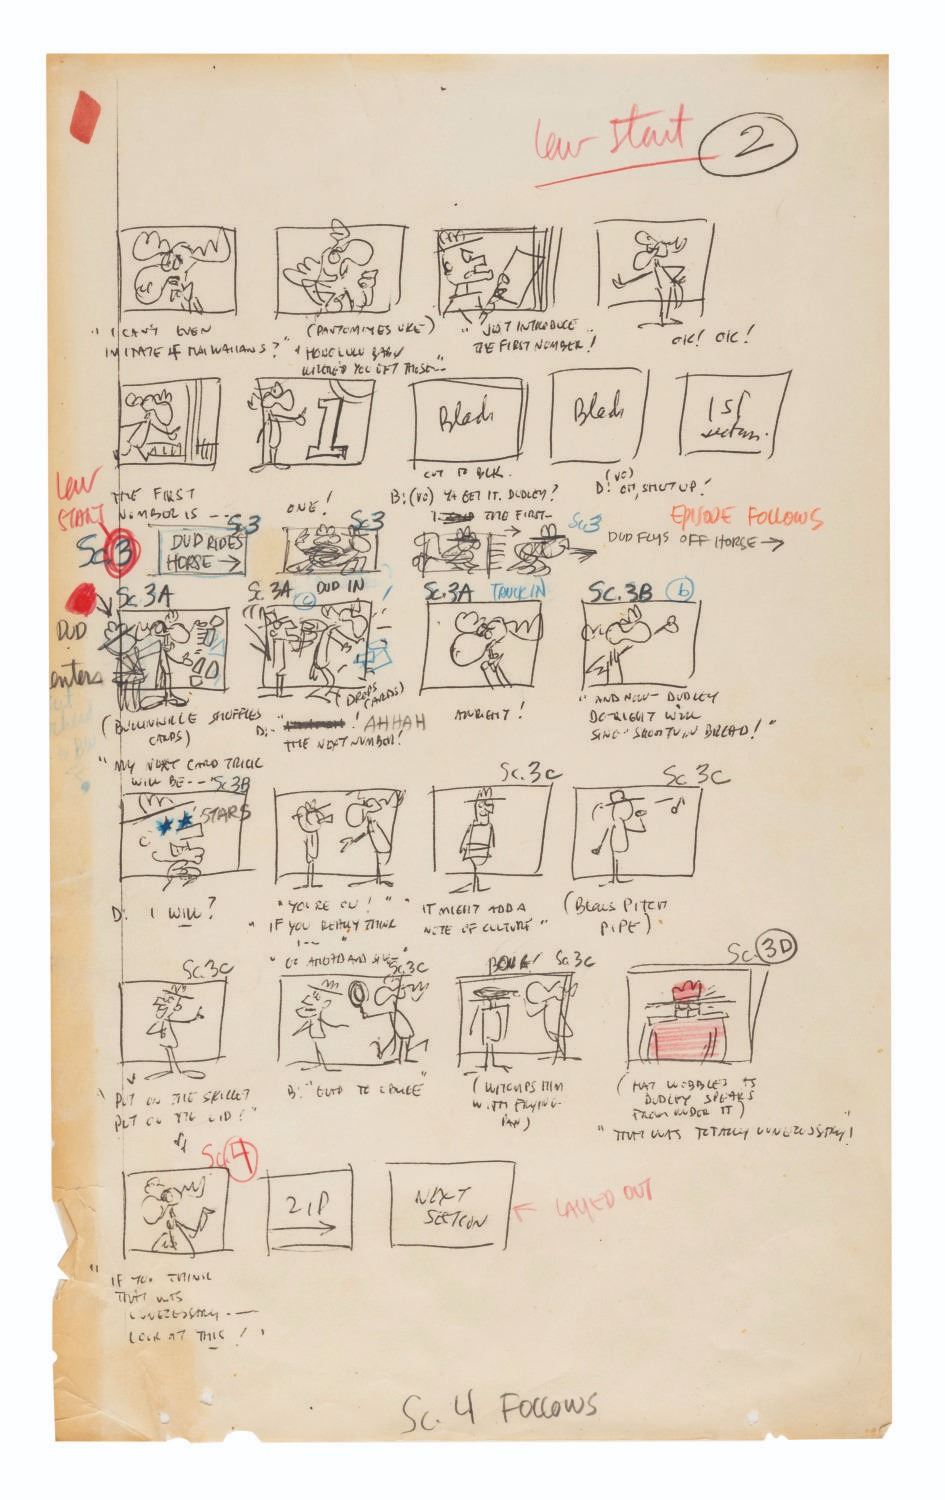 Lew Start
2
" I CAN'T EVEN
IMITATE HAWAIIANS?"
(PANTOMIMES UKE)
" HONOLULU BABY
WHERE'D YOU GET THOSE--
" JUST INTRODUCE
THE FIRST NUMBER!
OK! OK!
1
Black
Black
1st
section.
THE FIRST
NUMBER IS --
ONE!
CUT TO BLK.
B:(VO) YA GET IT, DUDLEY?
THE FIRST-
(VO)
D: OH, SHUT UP!
Lew
START
Sc.3
Sc3
DUD RIDES
HORSE →
Sc3
Sc3
EPISODE FOLLOWS
DUD FLYS OFF HORSE →
Sc.3A
DUD
enters
(BULLWINKLE SHUFFLES
CARDS)
" MY NEXT CARD TRICK
WILL BE --
Sc.3A
C
DUD IN
(DROPS
CARDS)
D:- ! AHHAH
THE NEXT NUMBER!
Sc.3A TRUCK IN
ALRIGHT!
Sc.3B b
" AND NOW - DUDLEY
DO-RIGHT WILL
SING "SHORTNIN BREAD!"
Sc3B
STARS
D: I WILL?
"YOU'RE ON!"
" IF YOU REALLY THINK
I-- "
" GO AHEAD AND SING"
Sc.3C
" IT MIGHT ADD A
NOTE OF CULTURE"
Sc.3C
(BLOWS PITCH
PIPE)
Sc.3C
" PUT ON THE SKILLET
PUT ON THE LID?"
Sc.3C
B: "GLAD TO OBLIGE"
BONG! Sc.3C
(WHOMPS HIM
WITH FRYING-
PAN)
Sc.3D
(HAT WOBBLES AS
DUDLEY SPEAKS
FROM UNDER IT)
" THAT WAS TOTALLY UNNECESSARY!"
Sc.4
" IF YOU THINK
THAT WAS
UNNECESSARY --
LOOK AT THIS!"
ZIP
NEXT
SECTION
← LAYED OUT
Sc. 4 FOLLOWS